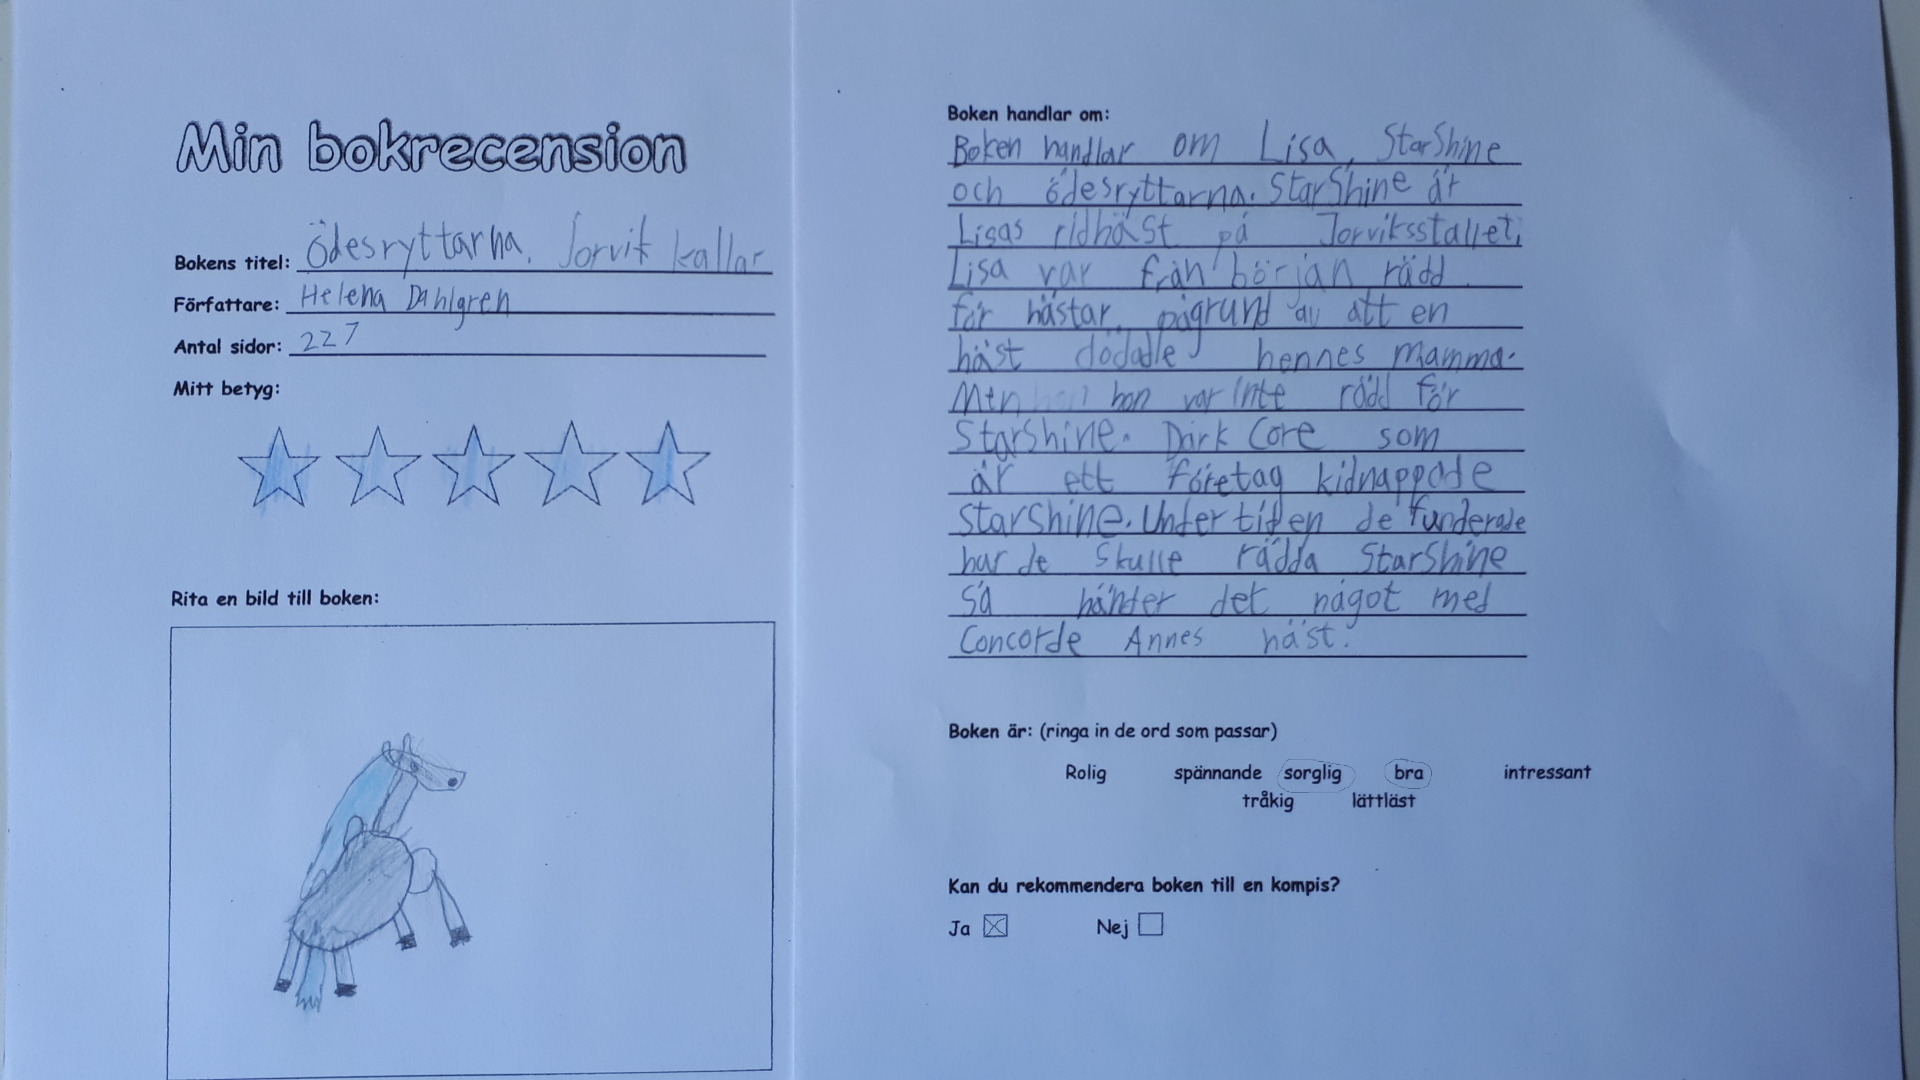 Min bokrecension
Bokens titel: Ödesryttarna. Jorvik kallar
Författare: Helena Dahlgren
Antal sidor: 227
Mitt betyg:
Rita en bild till boken:
Boken handlar om:
Boken handlar om Lisa, StarShine
och ödesryttarna. StarShine är
Lisas ridhäst på Jorviksstallet.
Lisa var från början rädd
för hästar, pågrund av att en
häst dödade hennes mamma.
Men hon var inte rädd för
StarShine. Dark Core som
är ett företag kidnappade
StarShine. Under tiden de funderade
hur de skulle rädda StarShine
så händer det något med
Concorde Annes häst.
Boken är: (ringa in de ord som passar)
Rolig spännande sorglig bra intressant
tråkig lättläst
Kan du rekommendera boken till en kompis?
Ja Nej